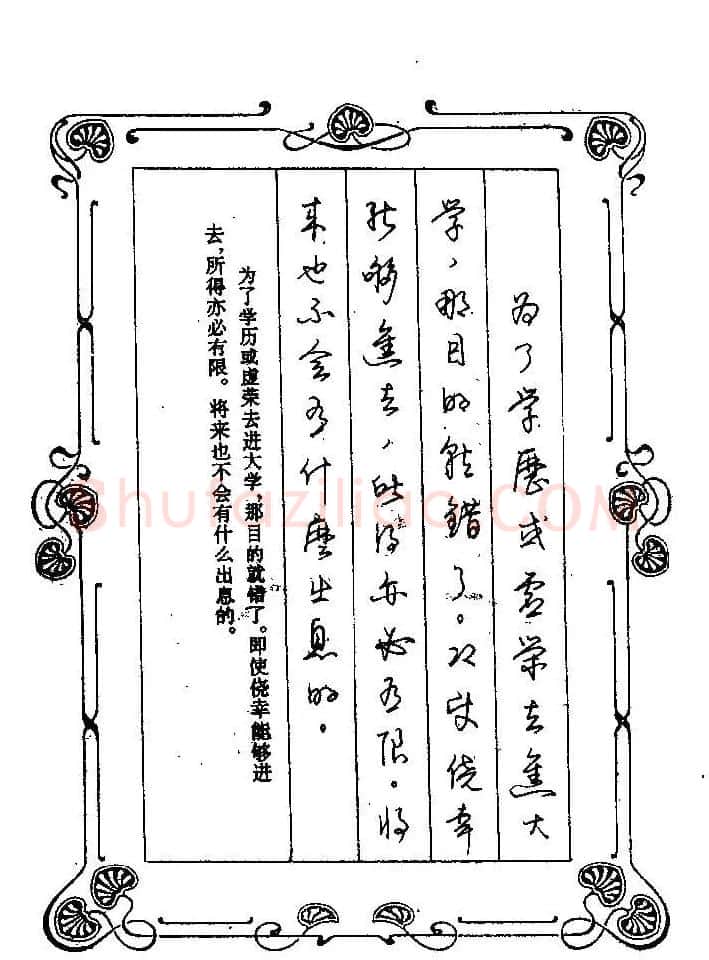 为了学歷或虚荣去進大
学，那目的就錯了。即使侥幸
能够進去，所得亦必有限。将
来也不会有什麼出息的。
为了学历或虚荣去进大学，那目的就错了。即使侥幸能够进
去，所得亦必有限。将来也不会有什么出息的。
Shufaziliao.COM